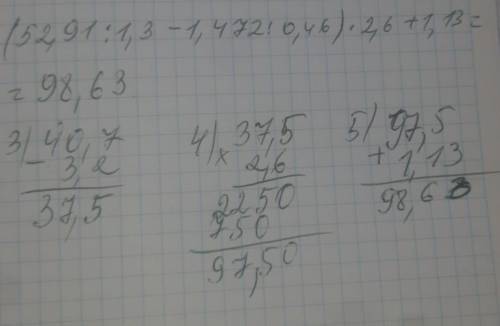 (52,91:1,3 - 1,472:0,46)·2,6+1,13=
= 98,63
3) 40,7
- 3,2
37,5
4) 37,5
× 2,6
2250
750
97,50
5) 97,5
+ 1,13
98,63